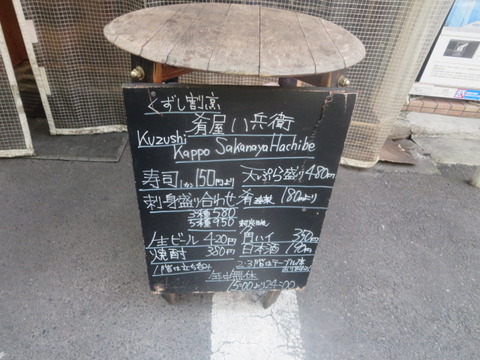 くずし割烹
肴屋八兵衛
Kuzushi
Kappo Sakanaya Hachibe
寿司 1カン 150円より 天ぷら盛り 480円
刺身盛り合わせ 肴 180円より
3種 580
5種 950
生ビール 420円 角ハイ 350円
焼酎 350円 日本酒 190円
1階は立ち呑み 2・3階はテーブル席
年中無休
15:00より24:00